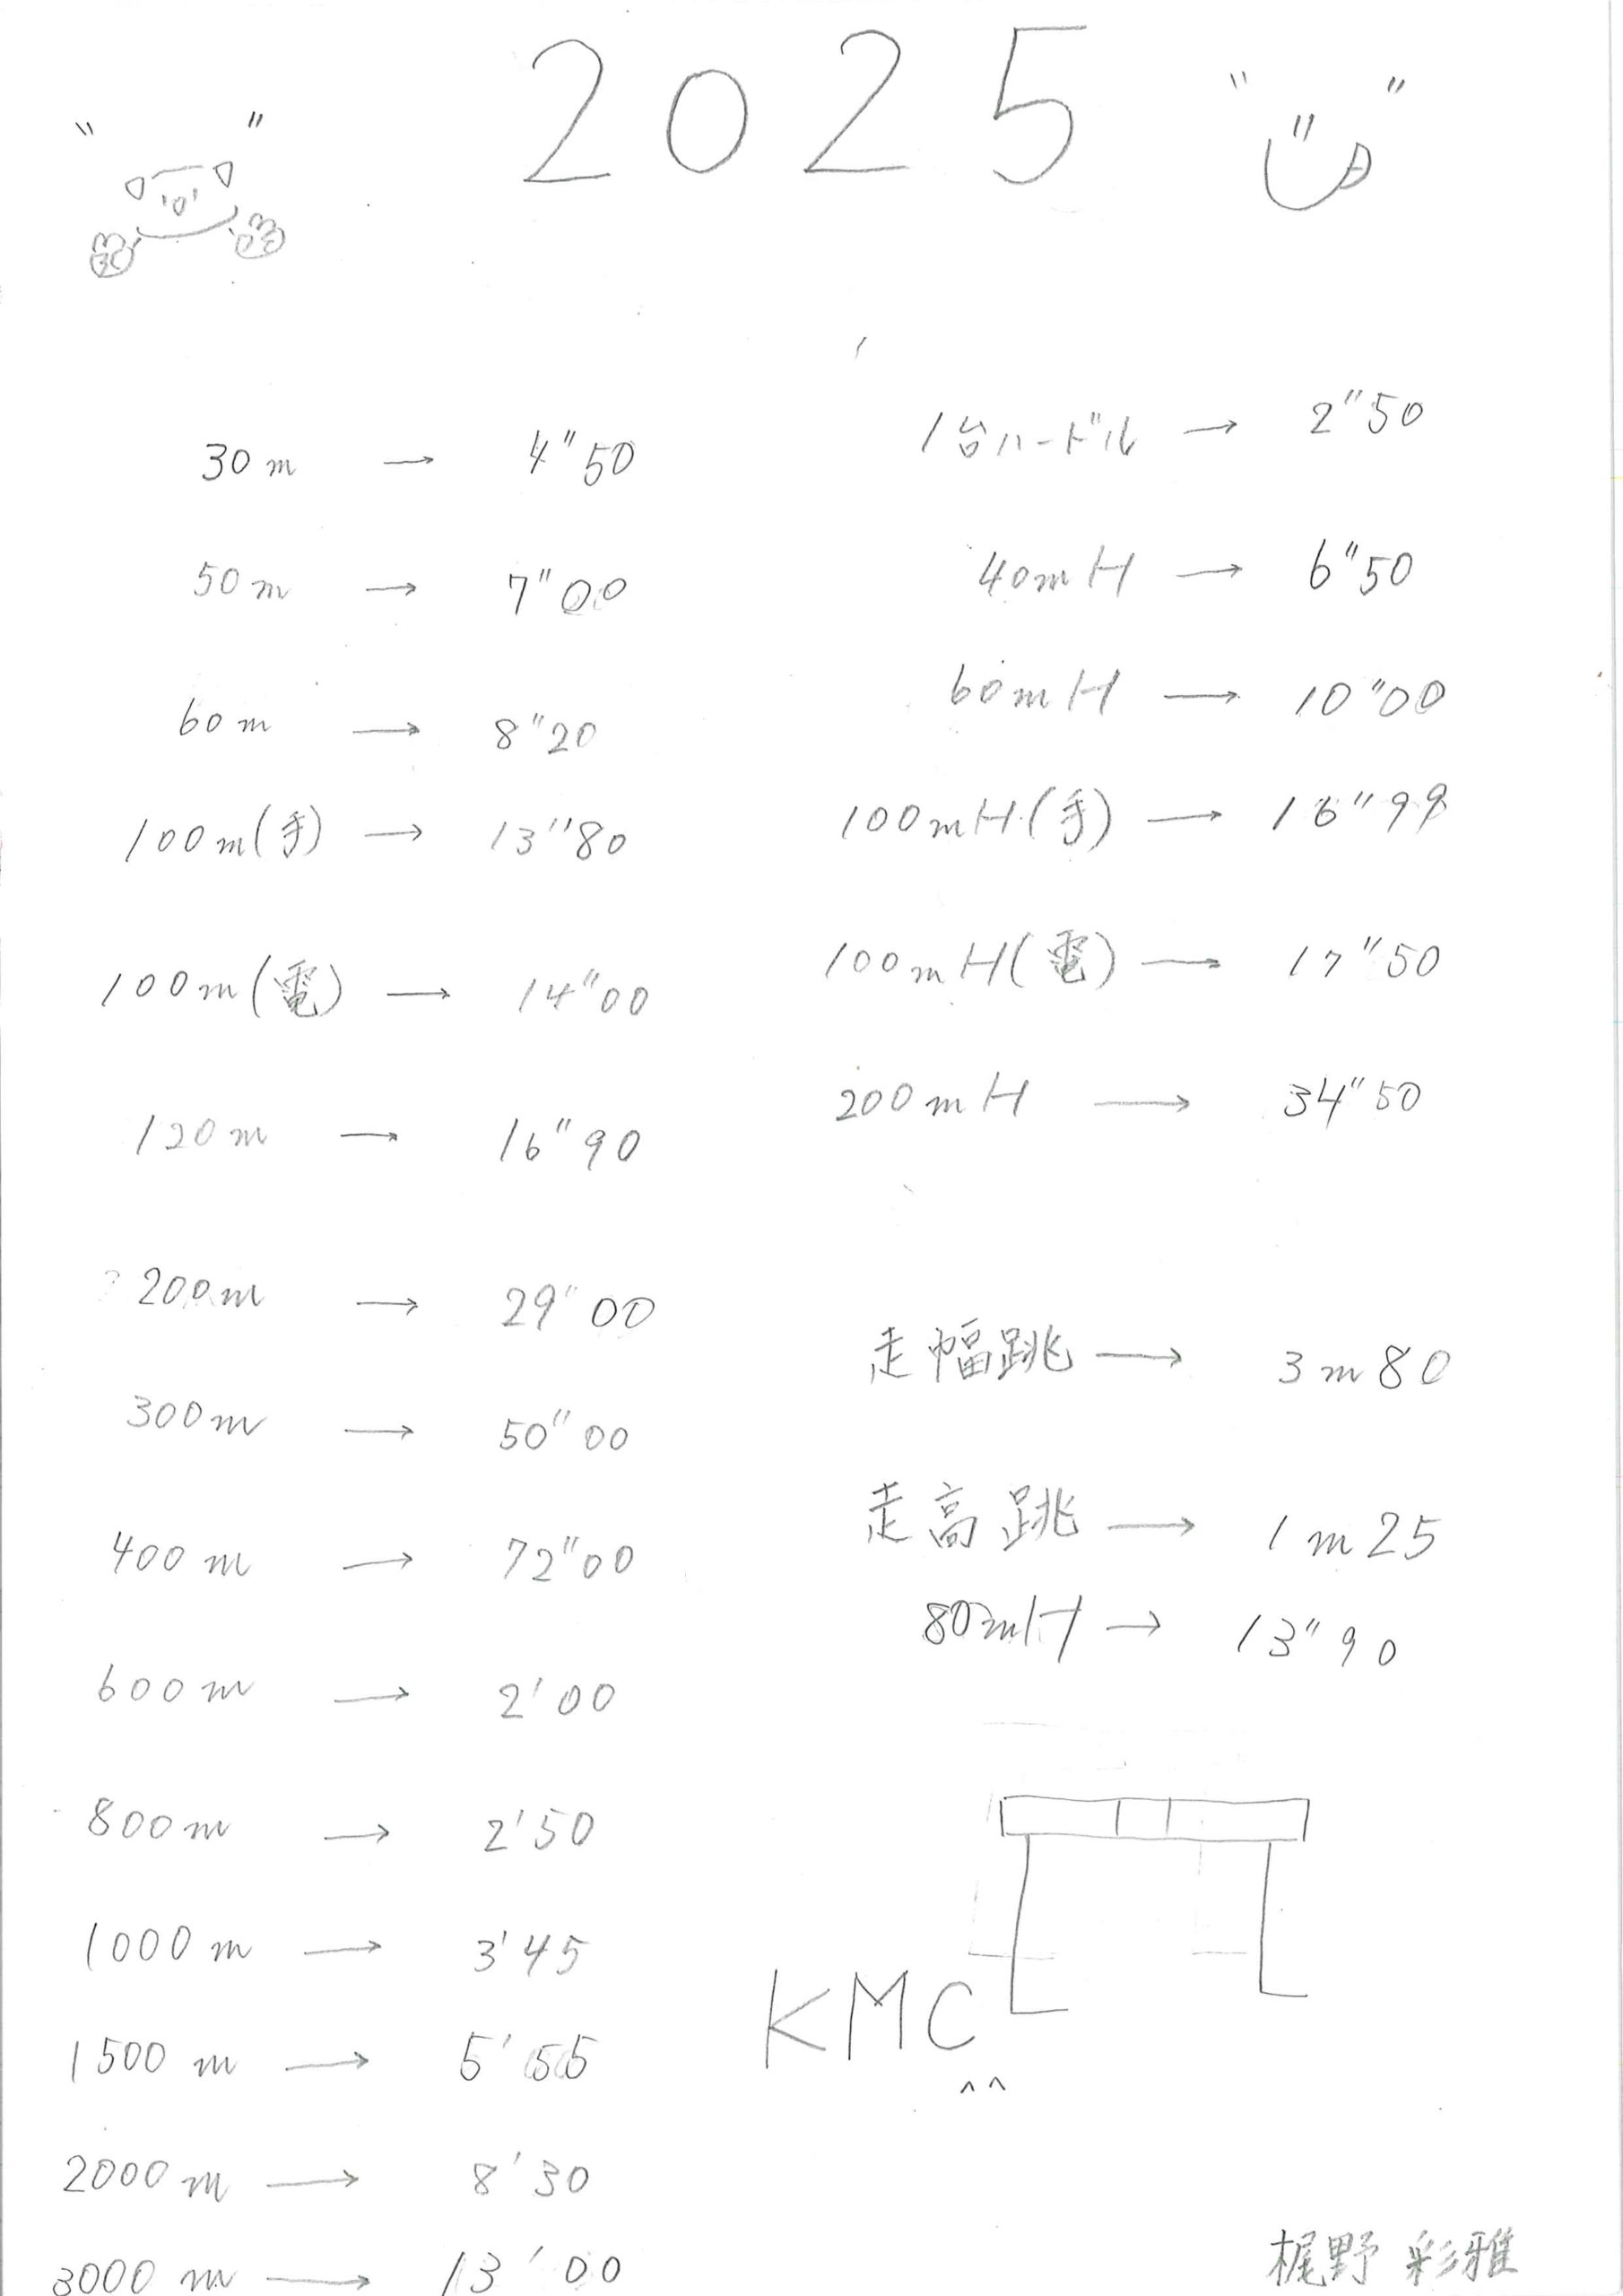 2025
30m → 4"50
50m → 7"00
60m → 8"20
100m(手) → 13"80
100m(電) → 14"00
120m → 16"90
200m → 29"00
300m → 50"00
400m → 72"00
600m → 2'00
800m → 2'50
1000m → 3'45
1500m → 5'55
2000m → 8'30
3000m → 13'00
1台ハードル → 2"50
40mH → 6"50
60mH → 10"00
100mH(手) → 16"99
100mH(電) → 17"50
200mH → 34"50
走幅跳 → 3m80
走高跳 → 1m25
80mH → 13"90
KMC
^^
梶野 彩雅